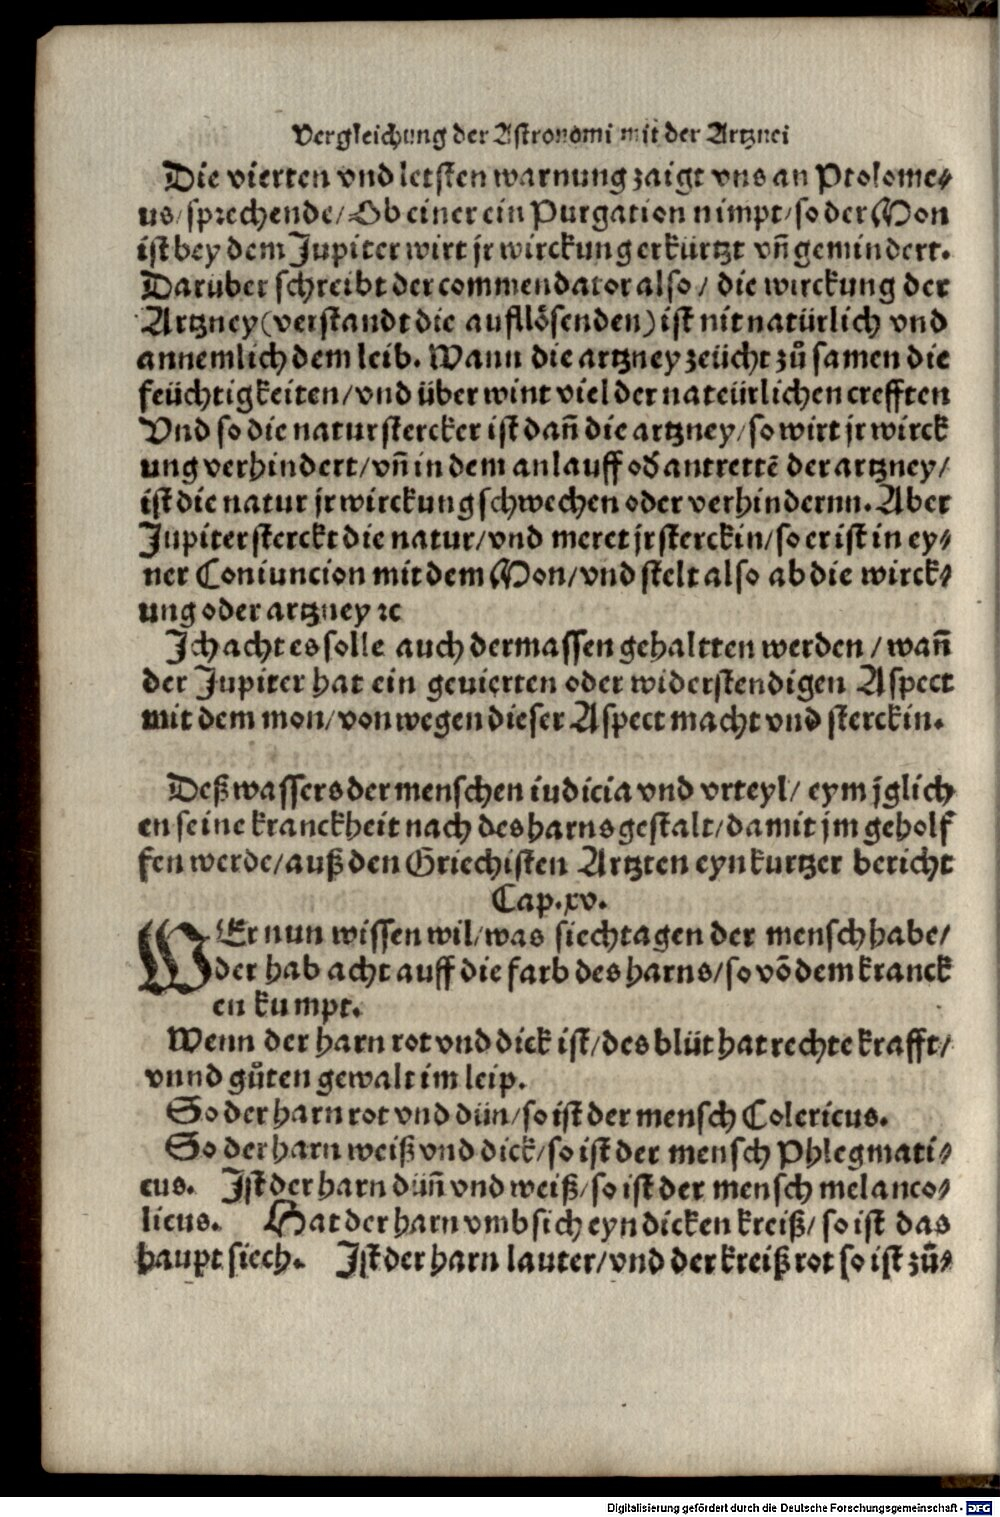 Vergleichung der Astronomi mit der Artznei
Die vierten vnd letsten warnung zaigt vns an Ptolome⸗
us/sprechende/Ob einer ein Purgation nimpt/so der Mon
ist bey dem Jupiter wirt jr wirckung erkürtzt vñ gemindert.
Darüber schreibt der commendator also/ die wirckung der
Artzney(verstandt die aufllösenden)ist nit natürlich vnd
annemlich dem leib. Wann die artzney zeücht zů samen die
feüchtigkeiten/vnd über wint viel der nateürlichen crefften
Vnd so die natur stercker ist dañ die artzney/so wirt jr wirck
ung verhindert/vñ in dem anlauff oď antrettẽ der artzney/
ist die natur jr wirckung schwechen oder verhindernn. Aber
Jupiter sterckt die natur/vnd meret jr sterckin/so er ist in ey⸗
ner Coniuncion mit dem Mon/vnd stelt also ab die wirck⸗
ung oder artzney ꝛc
Jch acht es solle auch dermassen gehaltten werden/wañ
der Jupiter hat ein geuierten oder widerstendigen Aspect
mit dem mon/von wegen dieser Aspect macht vnd sterckin.
Deß wassers der menschen iudicia vnd vrteyl/ eym jglich
en seine kranckheit nach des harns gestalt/damit jm geholf
fen werde/auß den Griechisten Artzten eyn kurtzer bericht
Cap.xv.
WEr nun wissen wil/was siechtagen der mensch habe/
der hab acht auff die farb des harns/so võ dem kranck
en kumpt.
Wenn der harn rot vnd dick ist/des blüt hat rechte krafft/
vnnd gůten gewalt im leip.
So der harn rot vnd dün/so ist der mensch Colericus.
So der harn weiß vnd dick/so ist der mensch Phlegmati⸗
cus. Jst der harn düñ vnd weiß/so ist der mensch melanco⸗
licus. Hat der harn vmb sich eyn dicken kreiß/ so ist das
haupt siech. Jst der harn lauter/vnd der kreiß rot so ist zů⸗
Digitalisierung gefördert durch die Deutsche Forschungsgemeinschaft - DFG